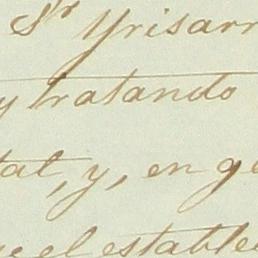 Sr Yrisarr
y tratando
tal, y, en ge
que el establec